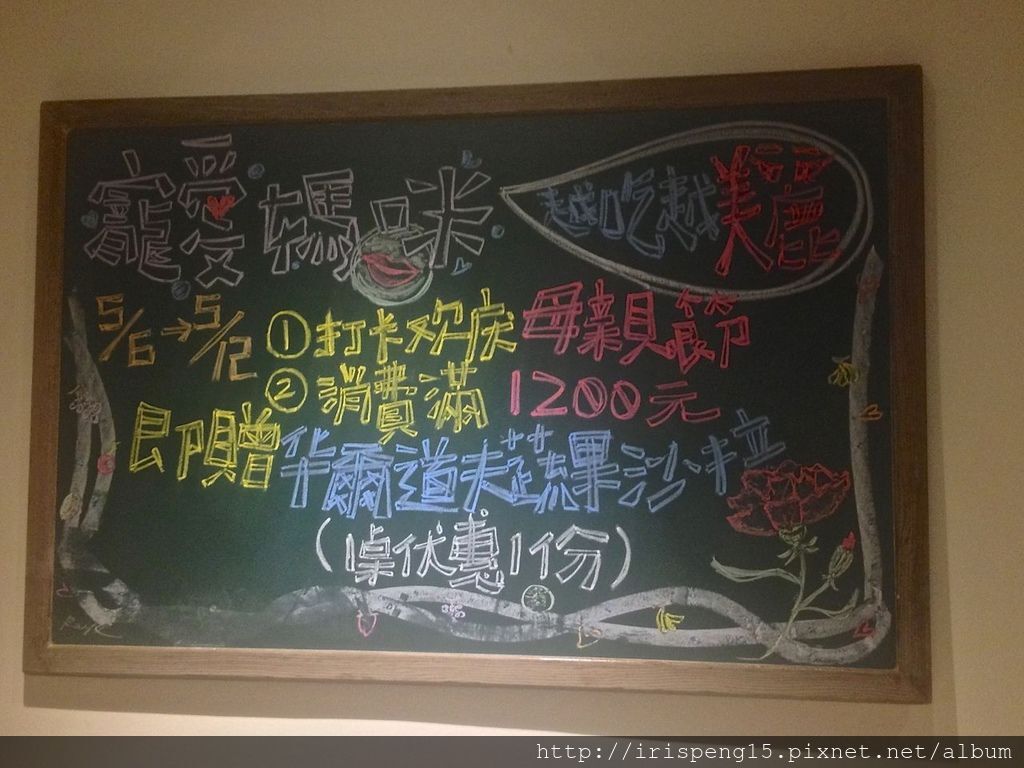 寵愛媽咪
越吃越美麗
5/6→5/12
①打卡欢庆母親節
②消費滿1200元
即贈华爾道夫蔬果沙拉
(1桌优惠1份)
http://irispeng15.pixnet.net/album